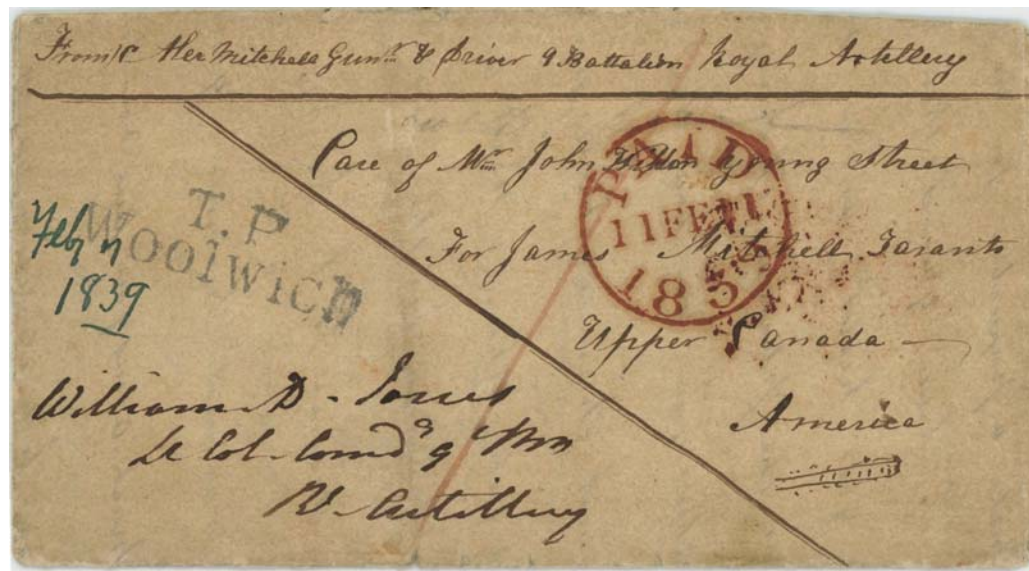 From Mitchell Gunr & Driver 9 Battalion Royal Artillery
Care of Mr John Young Street
For James Mitchell Taranto
Upper Canada
America
PAID
11FE11
1839
T.P
Woolwich
Feby 11
1839
William D. Jones
Lt Col. Comd 9 Bn
Rl Artillery